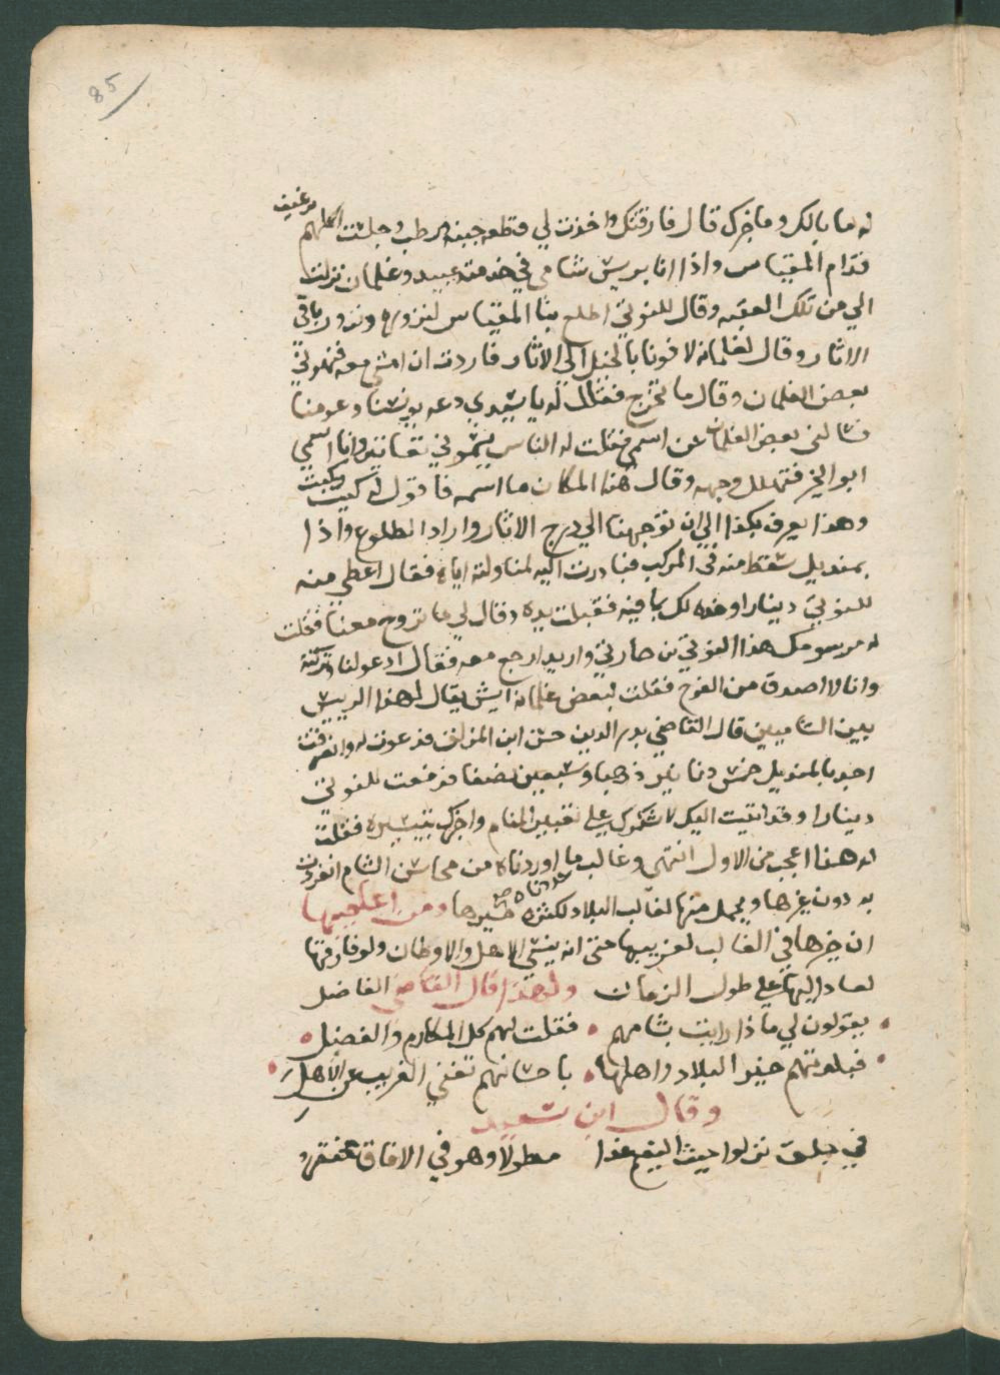 85
له ما بالك وما خبرك قال فارقتك واخذت لي قطعه جبنه ورطب وجلست اكلهم برغيف
قدام المقياس واذا انا بريس شامي في خدمته عبيد وغلمان نزلت
الي من تلك العقبه وقال للنوتي اطلع بنا المقياس لنزوره ونزور باقي
الاثار وقال لغلمانه لاقونا بالخيل الى الاثار فاردت ان امشي معه فنهوني
بعض الغلمان وقال ما تخرج فقال له يا سيدي دعه يونسنا دعوه معنا
فسالني بعض الغلمان عن اسمي فقلت له الناس يسموني وانا اسمي
ابو الخير فتهلل وجهه وقال هذا المكان ما اسمه فاقول له كيت وكيت
وهذا يعرف بكذا الي ان توجهنا الي درج الاثار واراد الطلوع واذا
بمنديل سقط منه في المركب فبادرت اليه لمناولته اياه فقال اعطي منه
للنوتي دينارا وخذه لك بما فيه فقبلت يده وقال لي ما تروح معنا فقلت
له مرسومك هذا النوتي من حارتي واريد ارجع معه فقال ادعو لنا وتركته
وانا لا اصدق من الفرح فقلت لبعض غلمانه ايش يقال لهذا الرييس
بين الشاميين قال القاضي بدر الدين حسن ابن المزلق فدعوت له وانصرفت
اجد بالمنديل خمس دنانير ذهبا وسبعين نصفا فدفعت للنوتي
دينارا وقد اتيت اليك لاشكرك علي تعبير المنام واخبرك بتيسيره فقلت
له هذا اعجب من الاول انتهى وغالب ما اوردناه من محاسن الشام انفردت
به دون غيرها ويحمل مثلها لغالب البلاد لكثرة خيرها ومن اعاجيبها
ان خيرها في الغالب لغريبها حتى انه ينسي الاهل والاوطان ولو فارقها
لعاد اليها علي طول الزمان ولهذا قال القاضي الفاضل
يقولون لي ماذا رايت بشامهم فقلت لهم كل المكارم والفضل
فبلدتهم خير البلاد واهلها باحسانهم تغني الغريب عن الاهل
وقال ابن سعيد
في جلق نزلوا حيث النعيم غدا مطولا وهو في الافاق مختصر